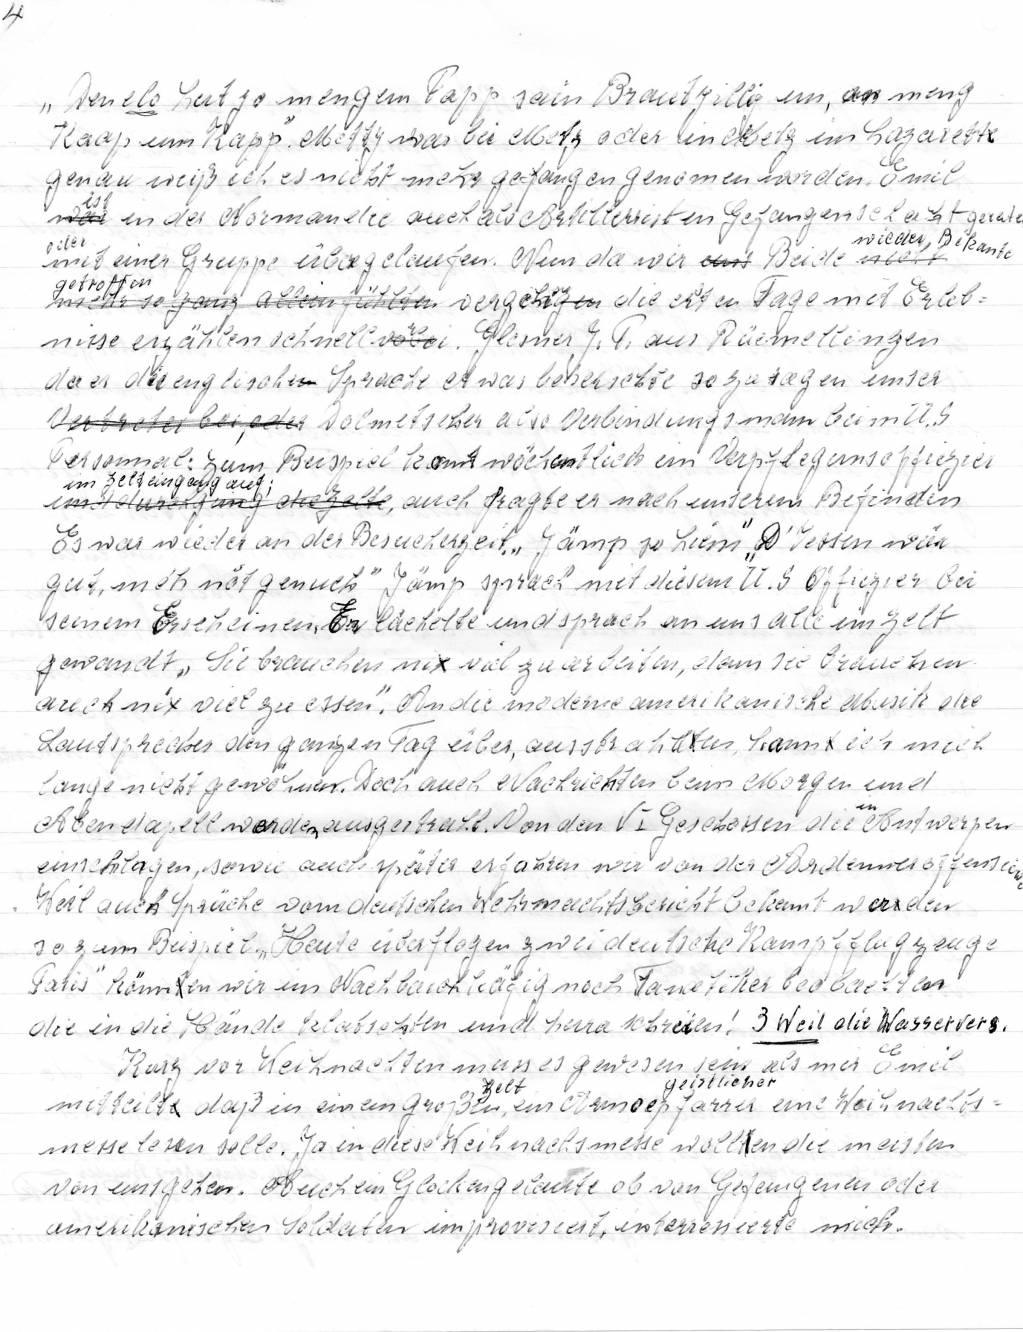 4
„ Den elo huet jo mengem Papp sain Brautgillé un, an meng
Kaap um Kapp." Metty war bei Metz oder in Metz im Lazarette
genau weiß ich es nicht mehr gefangen genomen worden. Emil
ist
war in der Normandie auch als Artillerist in Gefangenschaft geraten
oder wieder, Bekante
mit einer Gruppe übergelaufen. Nun da wir uns Beide nicht
getroffen
mehr so ganz allein fühlten vergehen die ersten Tage mit Erleb=
nisse erzählen schnell vorbei. Glesner J. P. aus Rümelingen
da er die englischen Sprache etwas beherschte sozusagen unser
Vertreter bei, oder Dolmetscher also Verbindungsmann beim U.S
Personnal: zum Beispiel kamt wöchentlich ein Verpflegunsoffiezier
im Zelteingang auf;
und durchgang die Zelte, auch fragte er nach unserem Befinden
Es war wieder an der Besucherzeit „ Jämp so him" „D'Iessen wär
gut, méh nöt genuch" Jämp sprach mit diesem U.S Offiezier bei
seinem Erscheinen. Er lächelte und sprach an uns alle im Zelt
gewandt „ Sie brauchen nix viel zu arbeiten, dann sie brauchen
auch nix viel zu essen". An die moderne amerikanische Musik die
Lautsprecher den ganzen Tag über, ausstrahlten, kann ich mich
lange nicht gewöhnen. Doch auch Nachrichten beim Morgen und
in
Abendapell werden ausgestrahlt. Von den V1 Geschossen die Antwerpen
einschlagen, sowie auch später erfahren wir von der Ardenneroffensive
. Weil auch Sprüche vom deutschen Wehrmachtsbericht bekant werden
so zum Beispiel „Heute überflogen zwei deutsche Kampfflugzeuge
Paris" können wir im Nachbarkäfig noch Fanatiker beobachten
die in die Hände klatschten und hura schreien! 3 Weil die Wasservers.
Kurz vor Weihnachten muss es gewesen sein als mir Emil
Zelt geistlicher
mitteilt daß in einem großen, ein Armeepfarrer eine Weihnachts=
messe lesen solle. Ja in diese Weihnachsmesse wollten die meisten
von uns gehen. Auch ein Glockengelaute ob von Gefangenen oder
amerikanischen Soldaten improvesiert, interressierte mich.